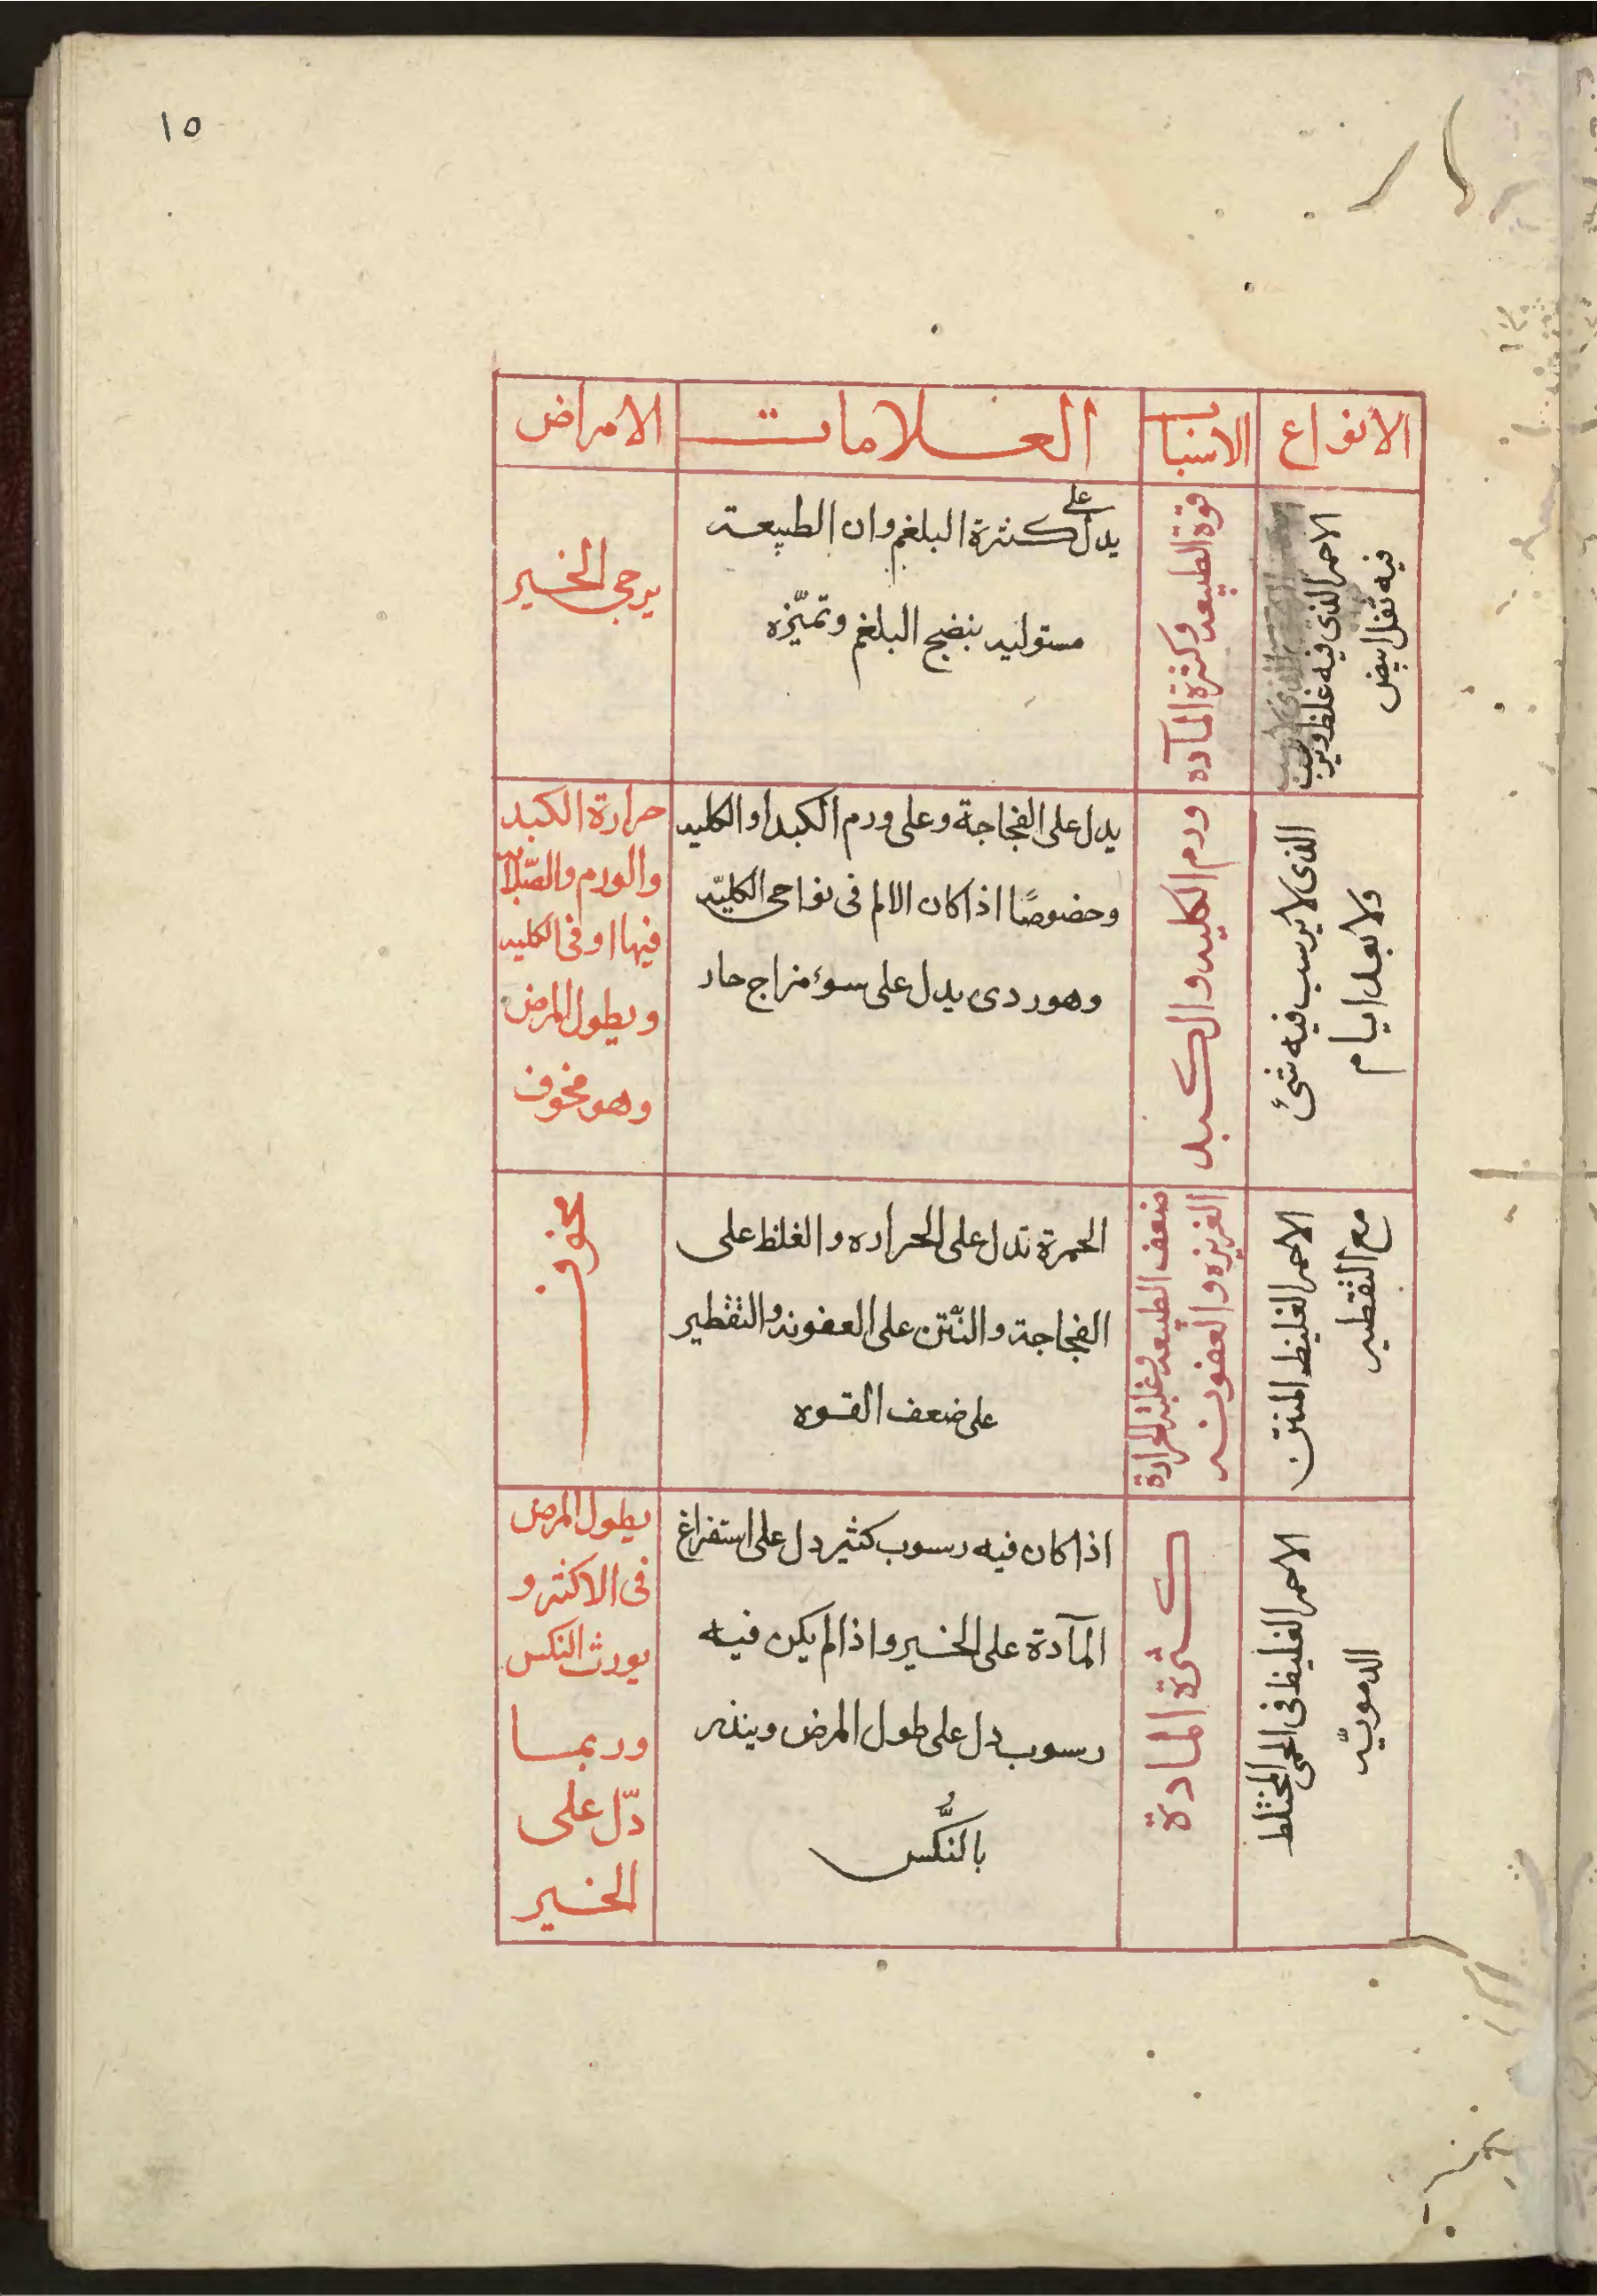 ١٥
الانواع
الاسباب
العلامات
الامراض
الاحمر الذي فيه غلظ ويرسب
فيه ثفل ابيض
قوة الطبيعه وكثرة المآده
يدل على كثرة البلغم وان الطبيعة
مستوليه بنضج البلغم وتميّزه
يرجى الخير
الذى لا يرسب فيه شئ
ولا بعد ايام
ورم الكليه والكبد
يدل على الفجاجة وعلى ورم الكبد او الكليه
وخصوصًا اذا كان الالم فى نواحى الكليّه
وهو ردى يدل على سوء مزاج حار
حرارة الكبد
والورم والصّلابه
فيها او فى الكليه
ويطول المرض
وهو مخوف
الاحمر الغليظ المنتن
مع التقطير
ضعف الطبيعه وغلبة الحرارة
الغريزه والعفونه
الحمرة تدل على الحراره والغلظ على
الفجاجة والنّتن على العفونه والتقطير
على ضعف القوه
مخوف
الاحمر الغليظ فى الحمى المختلط
الدمويّه
كثرة المادة
اذا كان فيه رسوب كثير دل على استفراغ
المآدة على الخير واذا لم يكن فيه
رسوب دل على طول المرض وينذر
بالنُّكس
يطول المرض
فى الاكثر و
يورث النكس
وربما
دّل على
الخير